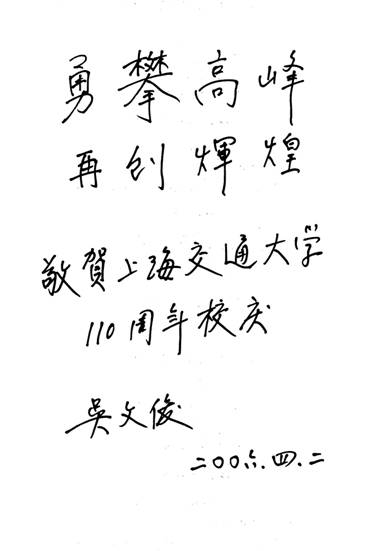 勇攀高峰
再创煇煌
敬賀上海交通大学
110周年校庆
吳文俊
二〇〇六.四.二